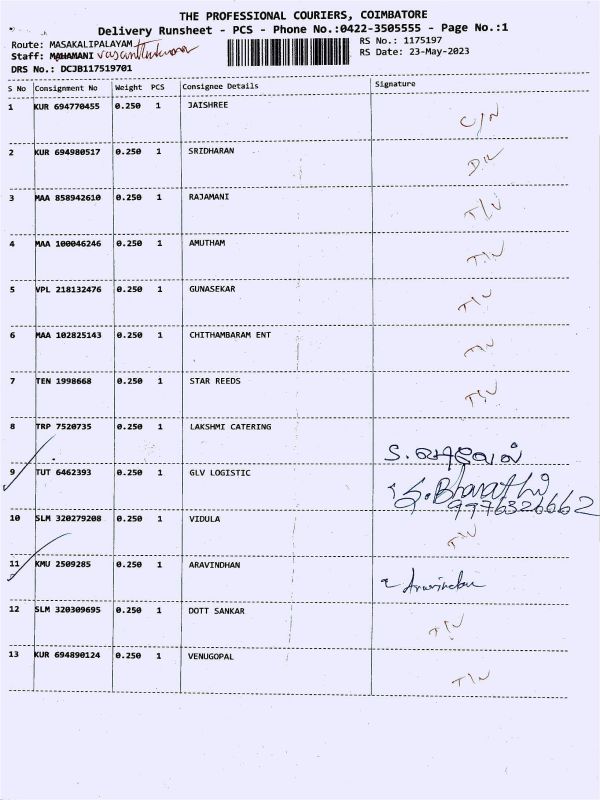 THE PROFESSIONAL COURIERS, COIMBATORE
Delivery Runsheet - PCS - Phone No.:0422-3505555 - Page No.:1
Route: MASAKALIPALAYAM
RS No.: 1175197
Staff: MAHAMANI
RS Date: 23-May-2023
DRS No.: DCJB117519701
S No Consignment No Weight PCS Consignee Details Signature
1 KUR 694770455 0.250 1 JAISHREE C/N
2 KUR 694980517 0.250 1 SRIDHARAN
3 MAA 858942610 0.250 1 RAJAMANI
4 MAA 100046246 0.250 1 AMUTHAM T/N
5 VPL 218132476 0.250 1 GUNASEKAR T/N
6 MAA 102825143 0.250 1 CHITHAMBARAM ENT T/N
7 TEN 1998668 0.250 1 STAR REEDS
8 TRP 7520735 0.250 1 LAKSHMI CATERING
9 TUT 6462393 0.250 1 GLV LOGISTIC
9976326662
10 SLM 320279208 0.250 1 VIDULA T/N
11 KMU 2509285 0.250 1 ARAVINDHAN
12 SLM 320309695 0.250 1 DOTT SANKAR T/N
13 KUR 694890124 0.250 1 VENUGOPAL T/N